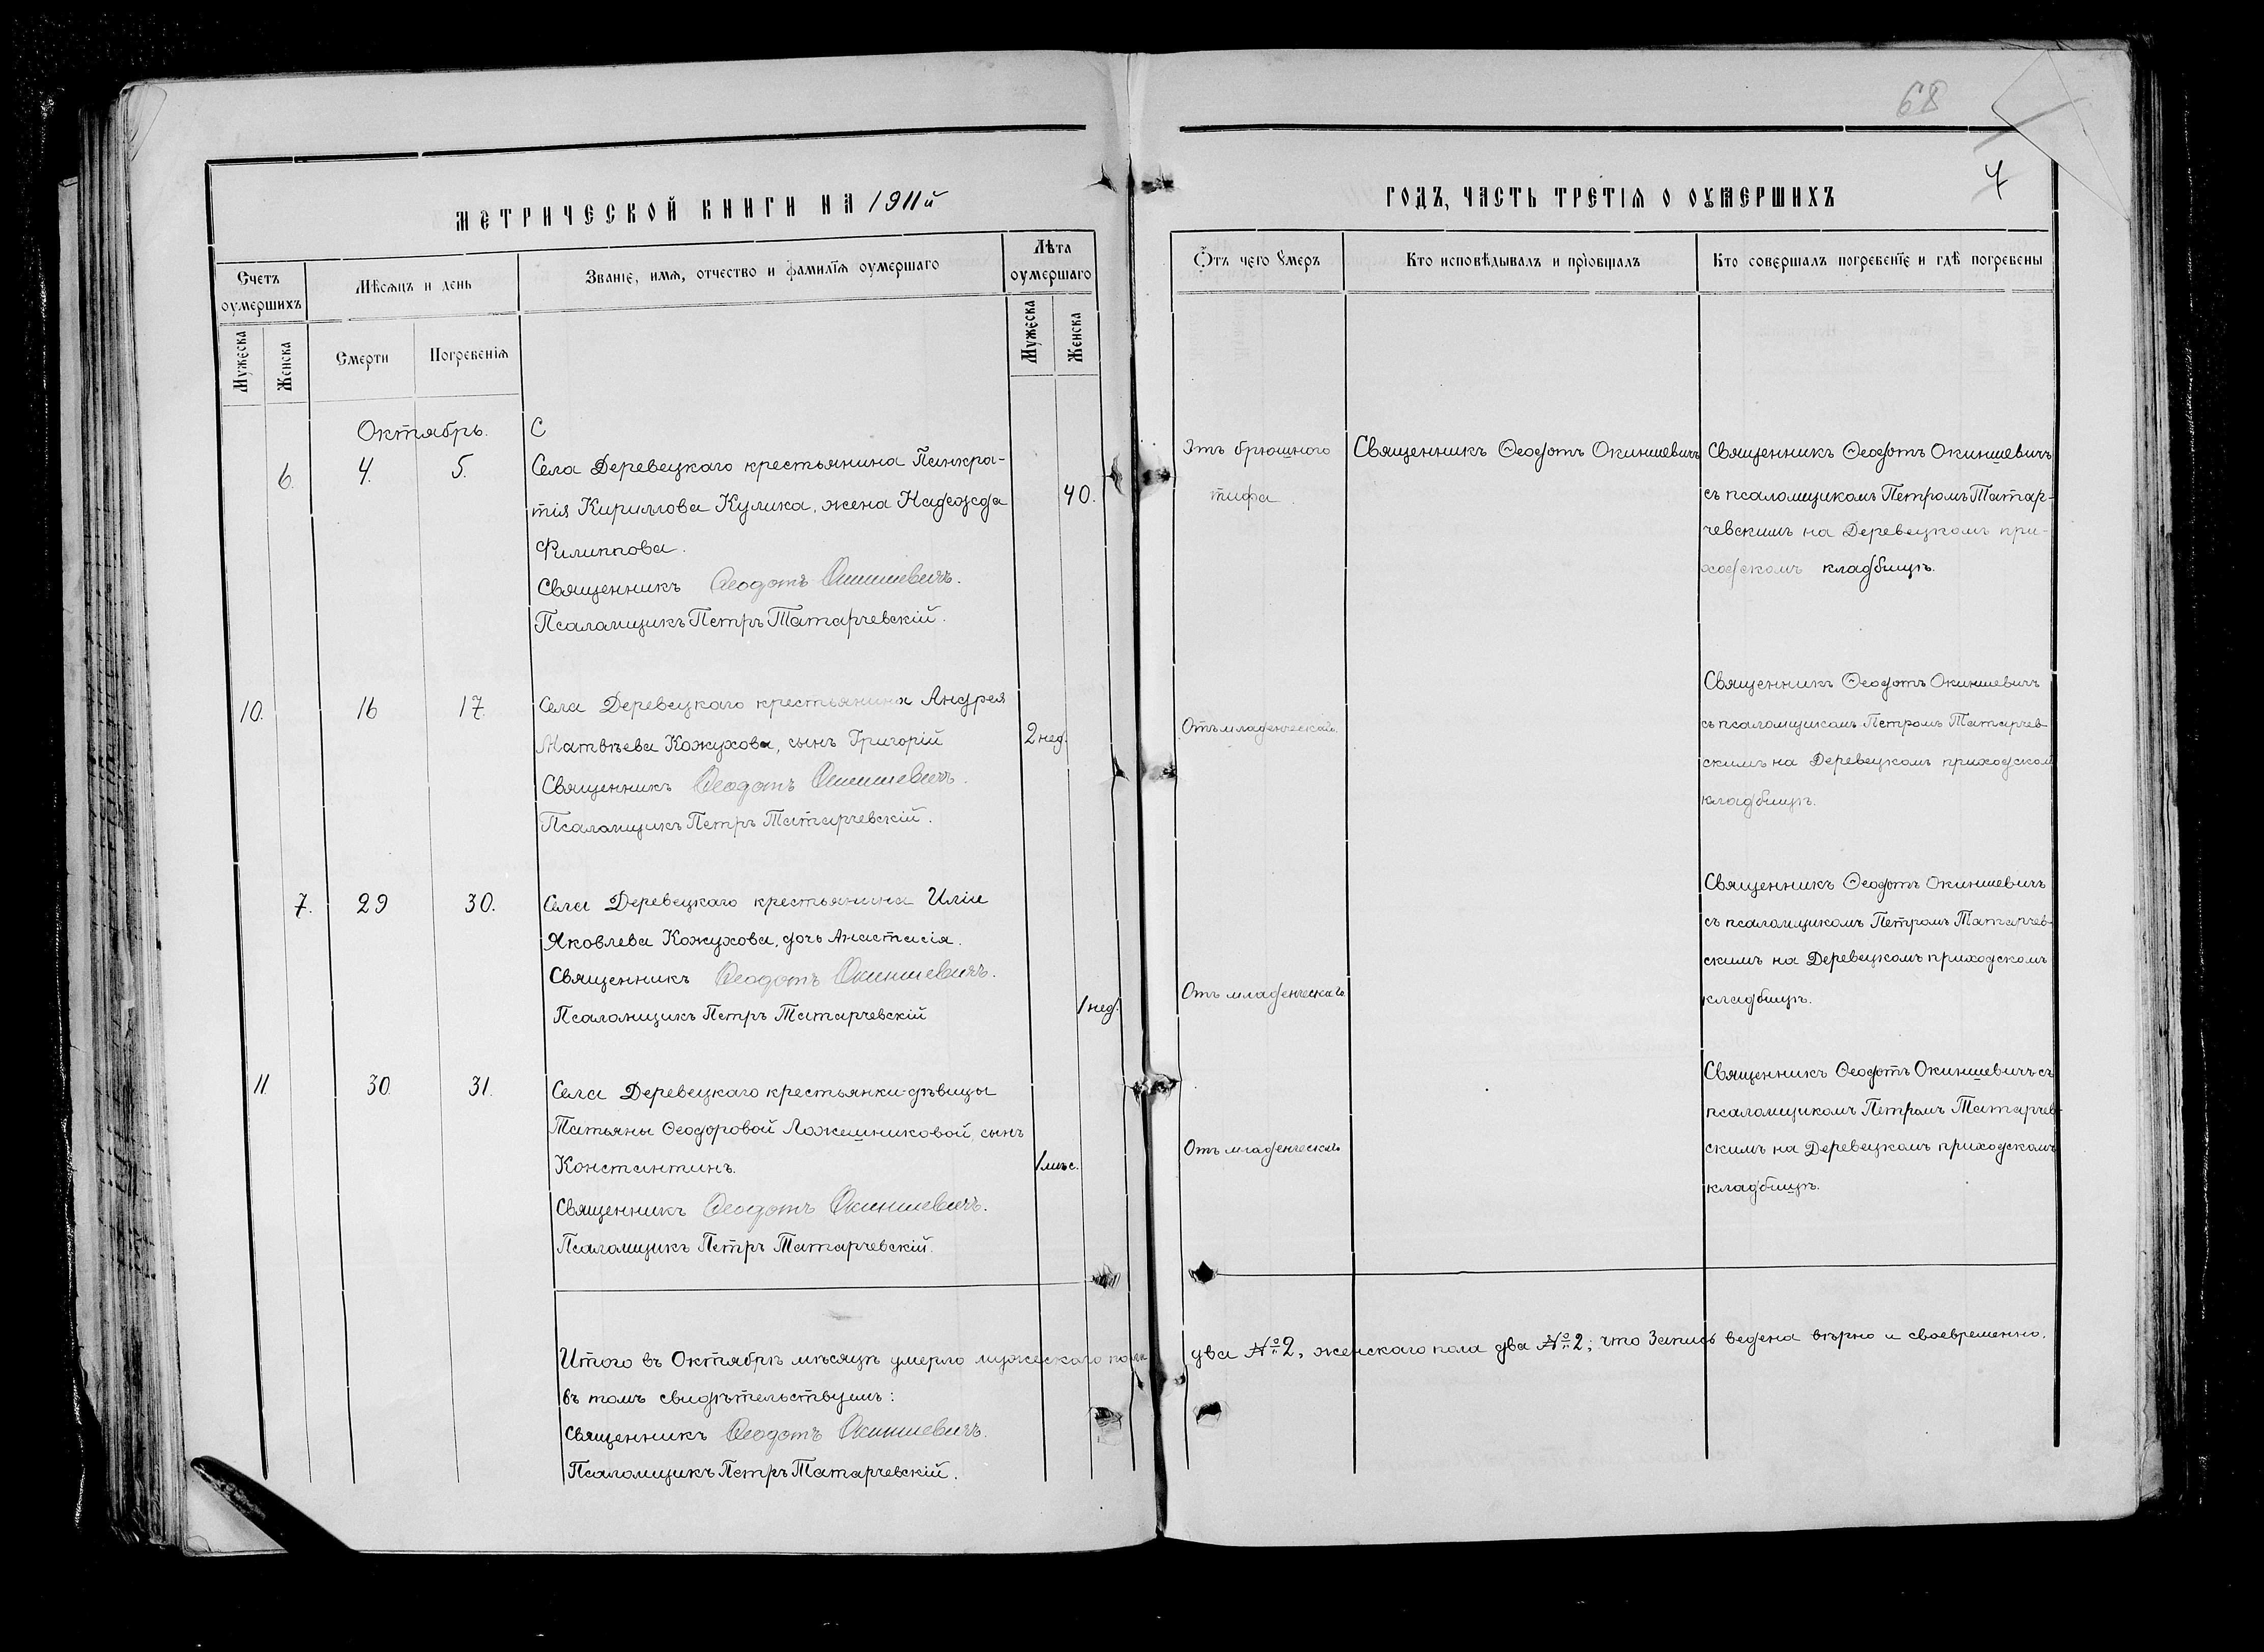 68
7
МЕТРИЧЕСКОЙ КНИГИ НА 1911й
ГОДЪ, ЧАСТЬ ТРЕТІЯ О ОУМЕРШИХЪ
Счетъ оумершихъ
Мѣсяцъ и день
Званіе, имя, отчество и фамилія оумершаго
Лѣта оумершаго
Отъ чего умеръ
Кто исповѣдывалъ и пріобщалъ
Кто совершалъ погребеніе и гдѣ погребены
Мужеска
Женска
Смерти
Погребенія
Мужеска
Женска
Октябрь.
С
6.
4.
5.
Села Деревецкаго крестьянина Панкра-
тія Кириллова Кулика, жена Надежда
Филиппова.
Священникъ Ѳеодотъ Окиншевичъ.
Псаломщикъ Петръ Татарчевскій.
40.
Отъ брюшного
тифа.
Священникъ Ѳеодотъ Окиншевичъ
Священникъ Ѳеодотъ Окиншевичъ
съ псаломщикомъ Петромъ Татар-
чевскимъ на Деревецкомъ при-
ходскомъ кладбищѣ.
10.
16
17.
Села Деревецкаго крестьянина Андрея
Матвѣева Кожухова, сынъ Григорій
Священникъ Ѳеодотъ Окиншевичъ.
Псаломщикъ Петръ Татарчевскій.
2 нед.
Отъ младенческой.
Священникъ Ѳеодотъ Окиншевичъ
съ псаломщикомъ Петромъ Татарчев
скимъ на Деревецкомъ приходском
кладбищѣ.
7.
29
30.
Села Деревецкаго крестьянина Иліи
Яковлева Кожухова, дочь Анастасія.
Священникъ Ѳеодотъ Окиншевичъ.
Псаломщикъ Петръ Татарчевскій
1 нед.
Отъ младенческ.
Священникъ Ѳеодотъ Окиншевичъ
съ псаломщикомъ Петромъ Татарчев-
скимъ на Деревецкомъ приходскомъ
кладбищѣ.
11
30.
31.
Села Деревецкаго крестьянки-дѣвицы
Татьяны Ѳеодоровой Ложешниковой, сынъ
Константинъ.
Священникъ Ѳеодотъ Окиншевичъ.
Псаломщикъ Петръ Татарчевскій.
1 мѣс.
Отъ младенческ.
Священникъ Ѳеодотъ Окиншевичъ съ
псаломщикомъ Петромъ Татарчев-
скимъ на Деревецкомъ приходскомъ
кладбищѣ.
Итого въ Октябрѣ мѣсяцѣ умерло мужескаго пола два №2, женскаго пола два №2; что запись ведена вѣрно и своевременно,
въ томъ свидѣтельствуемъ:
Священникъ Ѳеодотъ Окиншевичъ.
Псаломщикъ Петръ Татарчевскій.